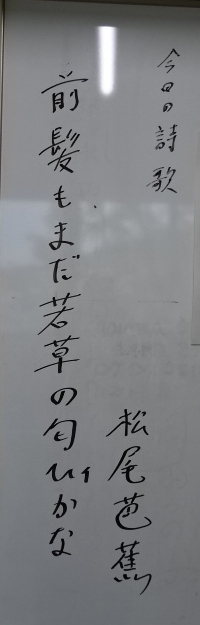 今日の詩歌
前髪もまだ若草の匂ひかな
松尾芭蕉